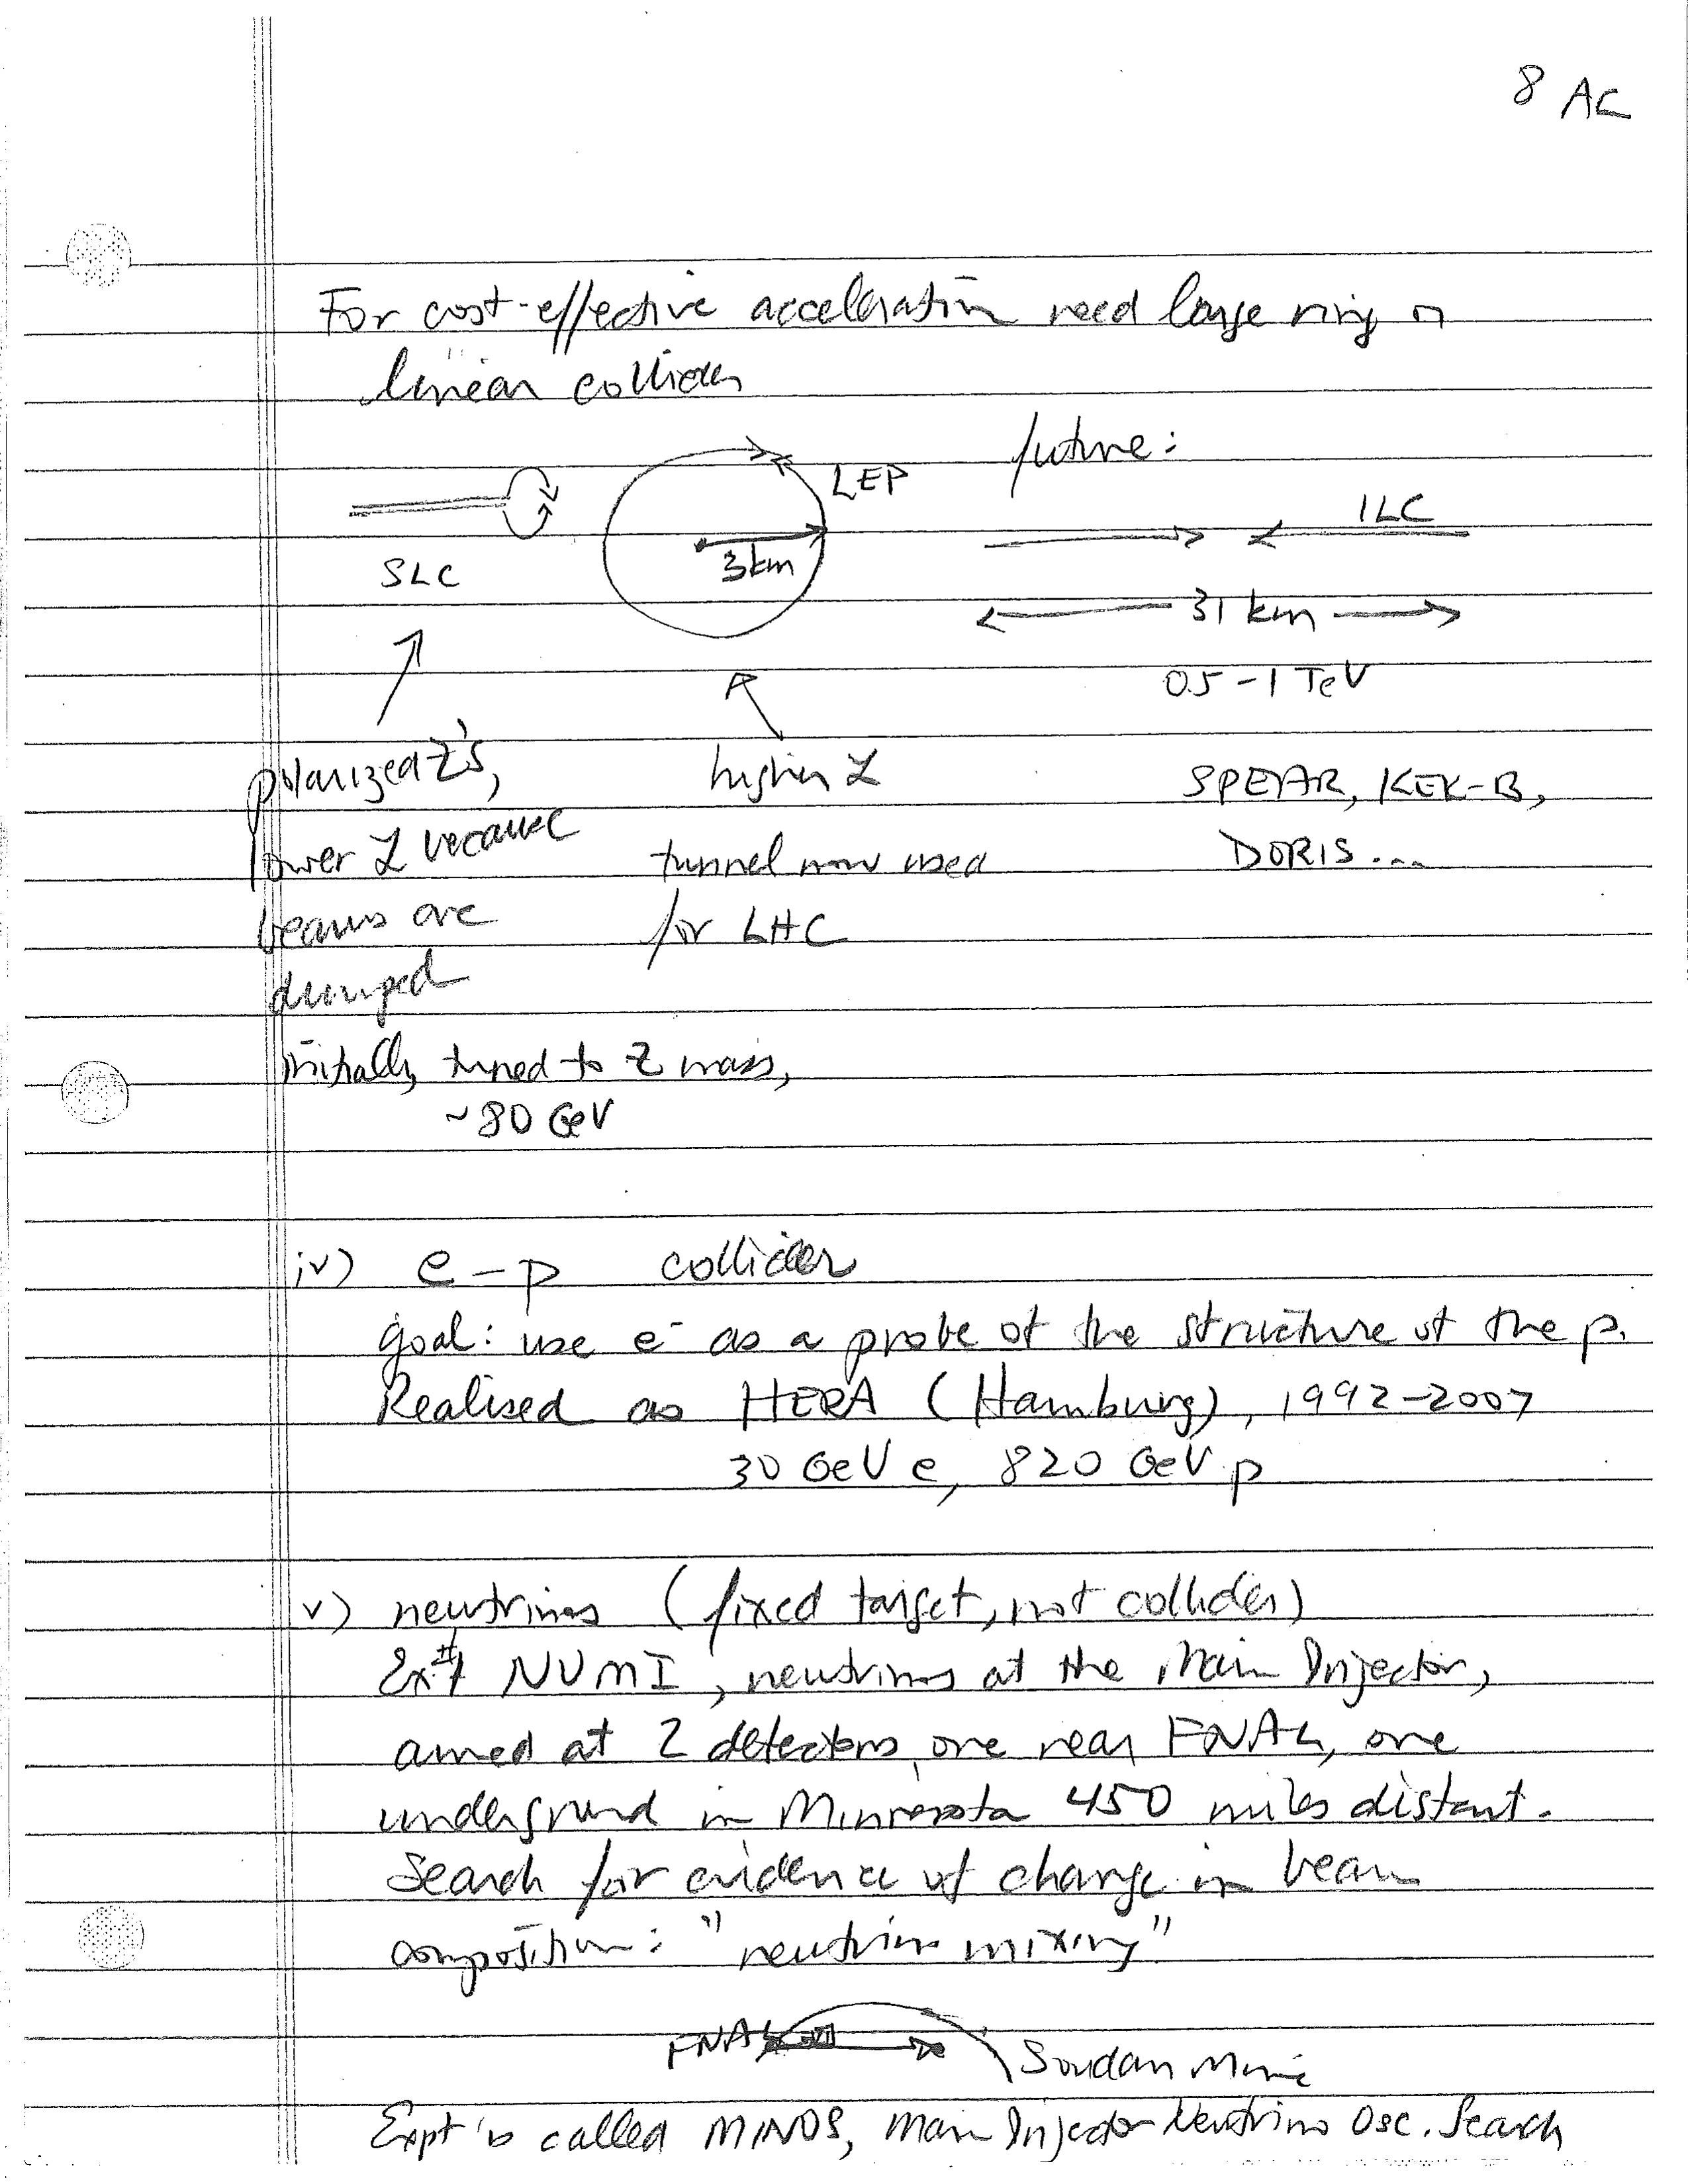 8 AC
For cost-effective acceleration need large ring or
linear collider
future:
LEP
ILC
3km
SLC
31 km
0.5-1 TeV
polarized Z's,
lower L because
beams are
dumped
higher L
tunnel now used
for LHC
SPEAR, KEK-B,
DORIS...
initially tuned to Z mass,
~80 GeV
iv) e-p collider
goal: use e⁻ as a probe of the structure of the p.
Realised as HERA (Hamburg), 1992-2007
30 GeV e, 820 GeV p
v) neutrinos (fixed target, not collider)
Ex #1 NUMI, neutrinos at the Main Injector,
aimed at 2 detectors, one near FNAL, one
underground in Minnesota 450 miles distant.
Search for evidence of change in beam
composition: "neutrino mixing"
FNAL
Soudan Mine
Expt is called MINOS, Main Injector Neutrino Osc. Search